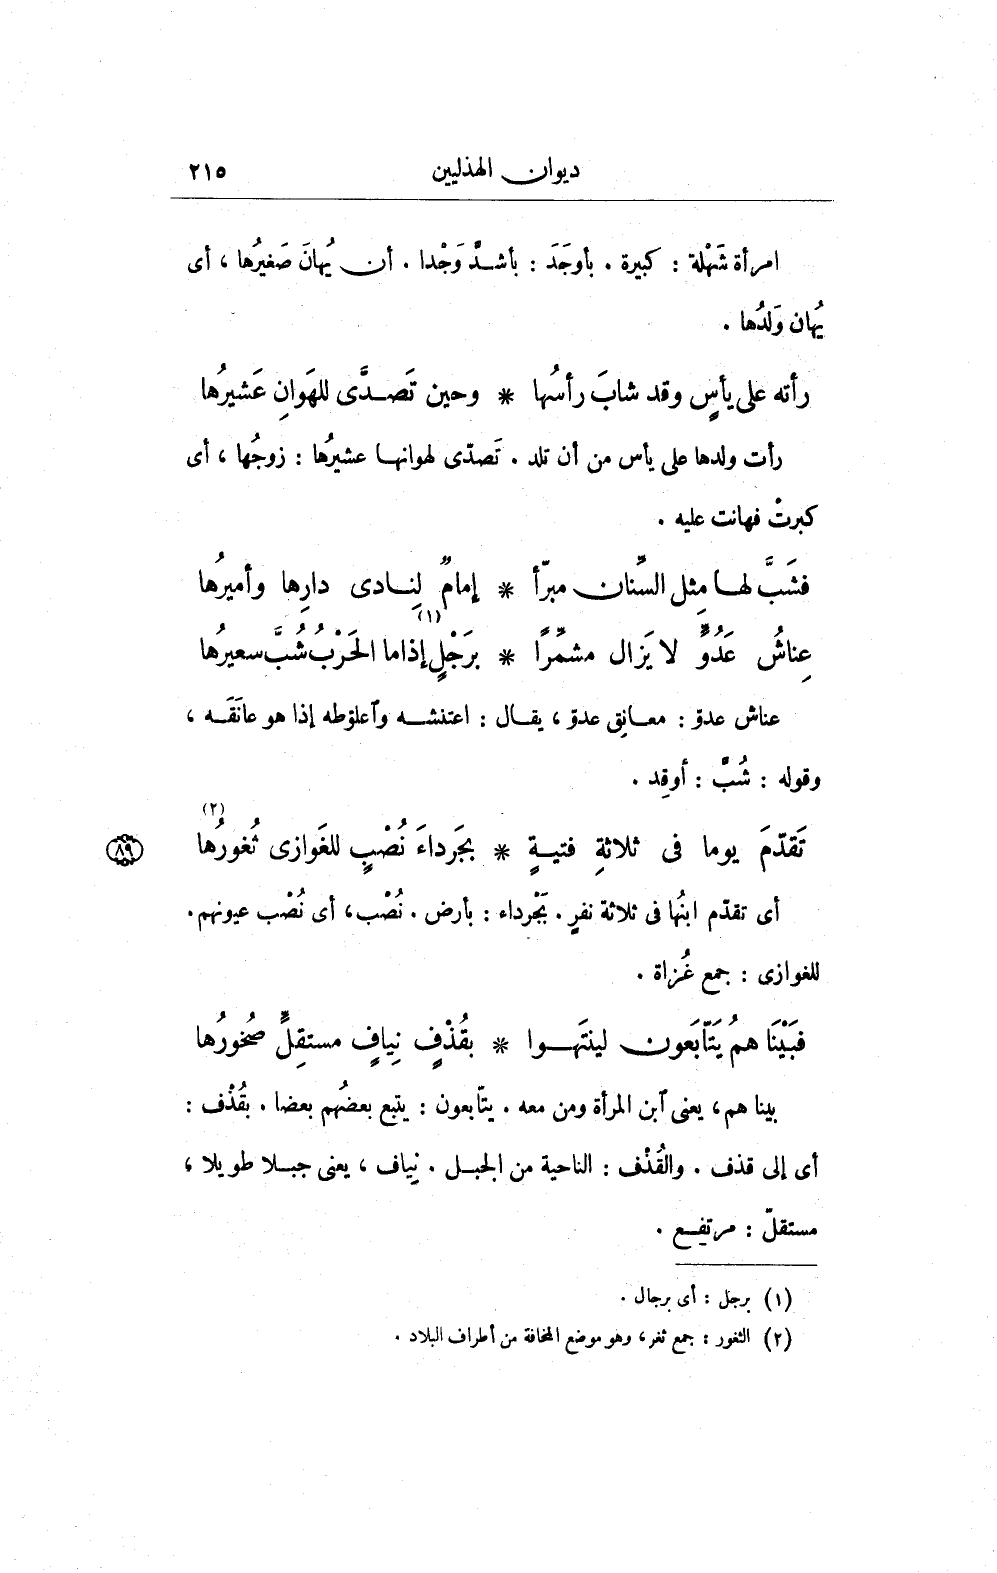 ديوان الهذليين ٢١٥
امرأة شَهْلة : كبيرة . بأوجَدَ : بأشدَّ وَجْدا . أن يُهانَ صَغيرُها ، أى
يُهان وَلَدُها .
رأته على يأسٍ وقد شابَ رأسُها * وحين تَصدَّى للهَوانِ عَشيرُها
رأت ولدها على يأس من أن تلد . تَصدّى لهوانها عشيرُها : زوجُها ، أى
كبرتْ فهانت عليه .
فشَبَّ لها مِثل السِّنان مبرّأ * إمامٌ لِنادى دارِها وأميرُها
عِناشُ عَدُوٍّ لا يَزال مشمِّرًا * برَجْلٍ (١) إذا ما الحَرْبُ شُبَّ سعيرُها
عناش عدوّ : معانِق عدوّ ، يقال : اعتنشه وٱعلوّطه إذا هو عانَقَه ،
وقوله : شُبَّ : أوقِد .
تَقدّمَ يوما فى ثلاثةِ فتيةٍ * بجَرداءَ نُصْبٍ للغَوازى ثُغورُها (٢) ٨٩
أى تقدّم ابنُها فى ثلاثة نفرٍ . بجَرداء : بأرض . نُصْب ، أى نُصْب عيونهم .
للغوازى : جمع غُزاة .
فبَيْنَا همُ يَتّابَعون لينتَهوا * بقُذْفٍ نِيافٍ مستقِلٍّ صُخورُها
بينا هم ، يعنى ٱبن المرأة ومن معه . يتّابعون : يتبع بعضُهم بعضا . بقُذْف :
أى إلى قذف . والقُذْف : الناحية من الجبل . نِياف ، يعنى جبلا طويلا ،
مستقلّ : مرتفع .
(١) برجل : أى برجال .
(٢) الثغور : جمع ثغر ، وهو موضع المخافة من أطراف البلاد .